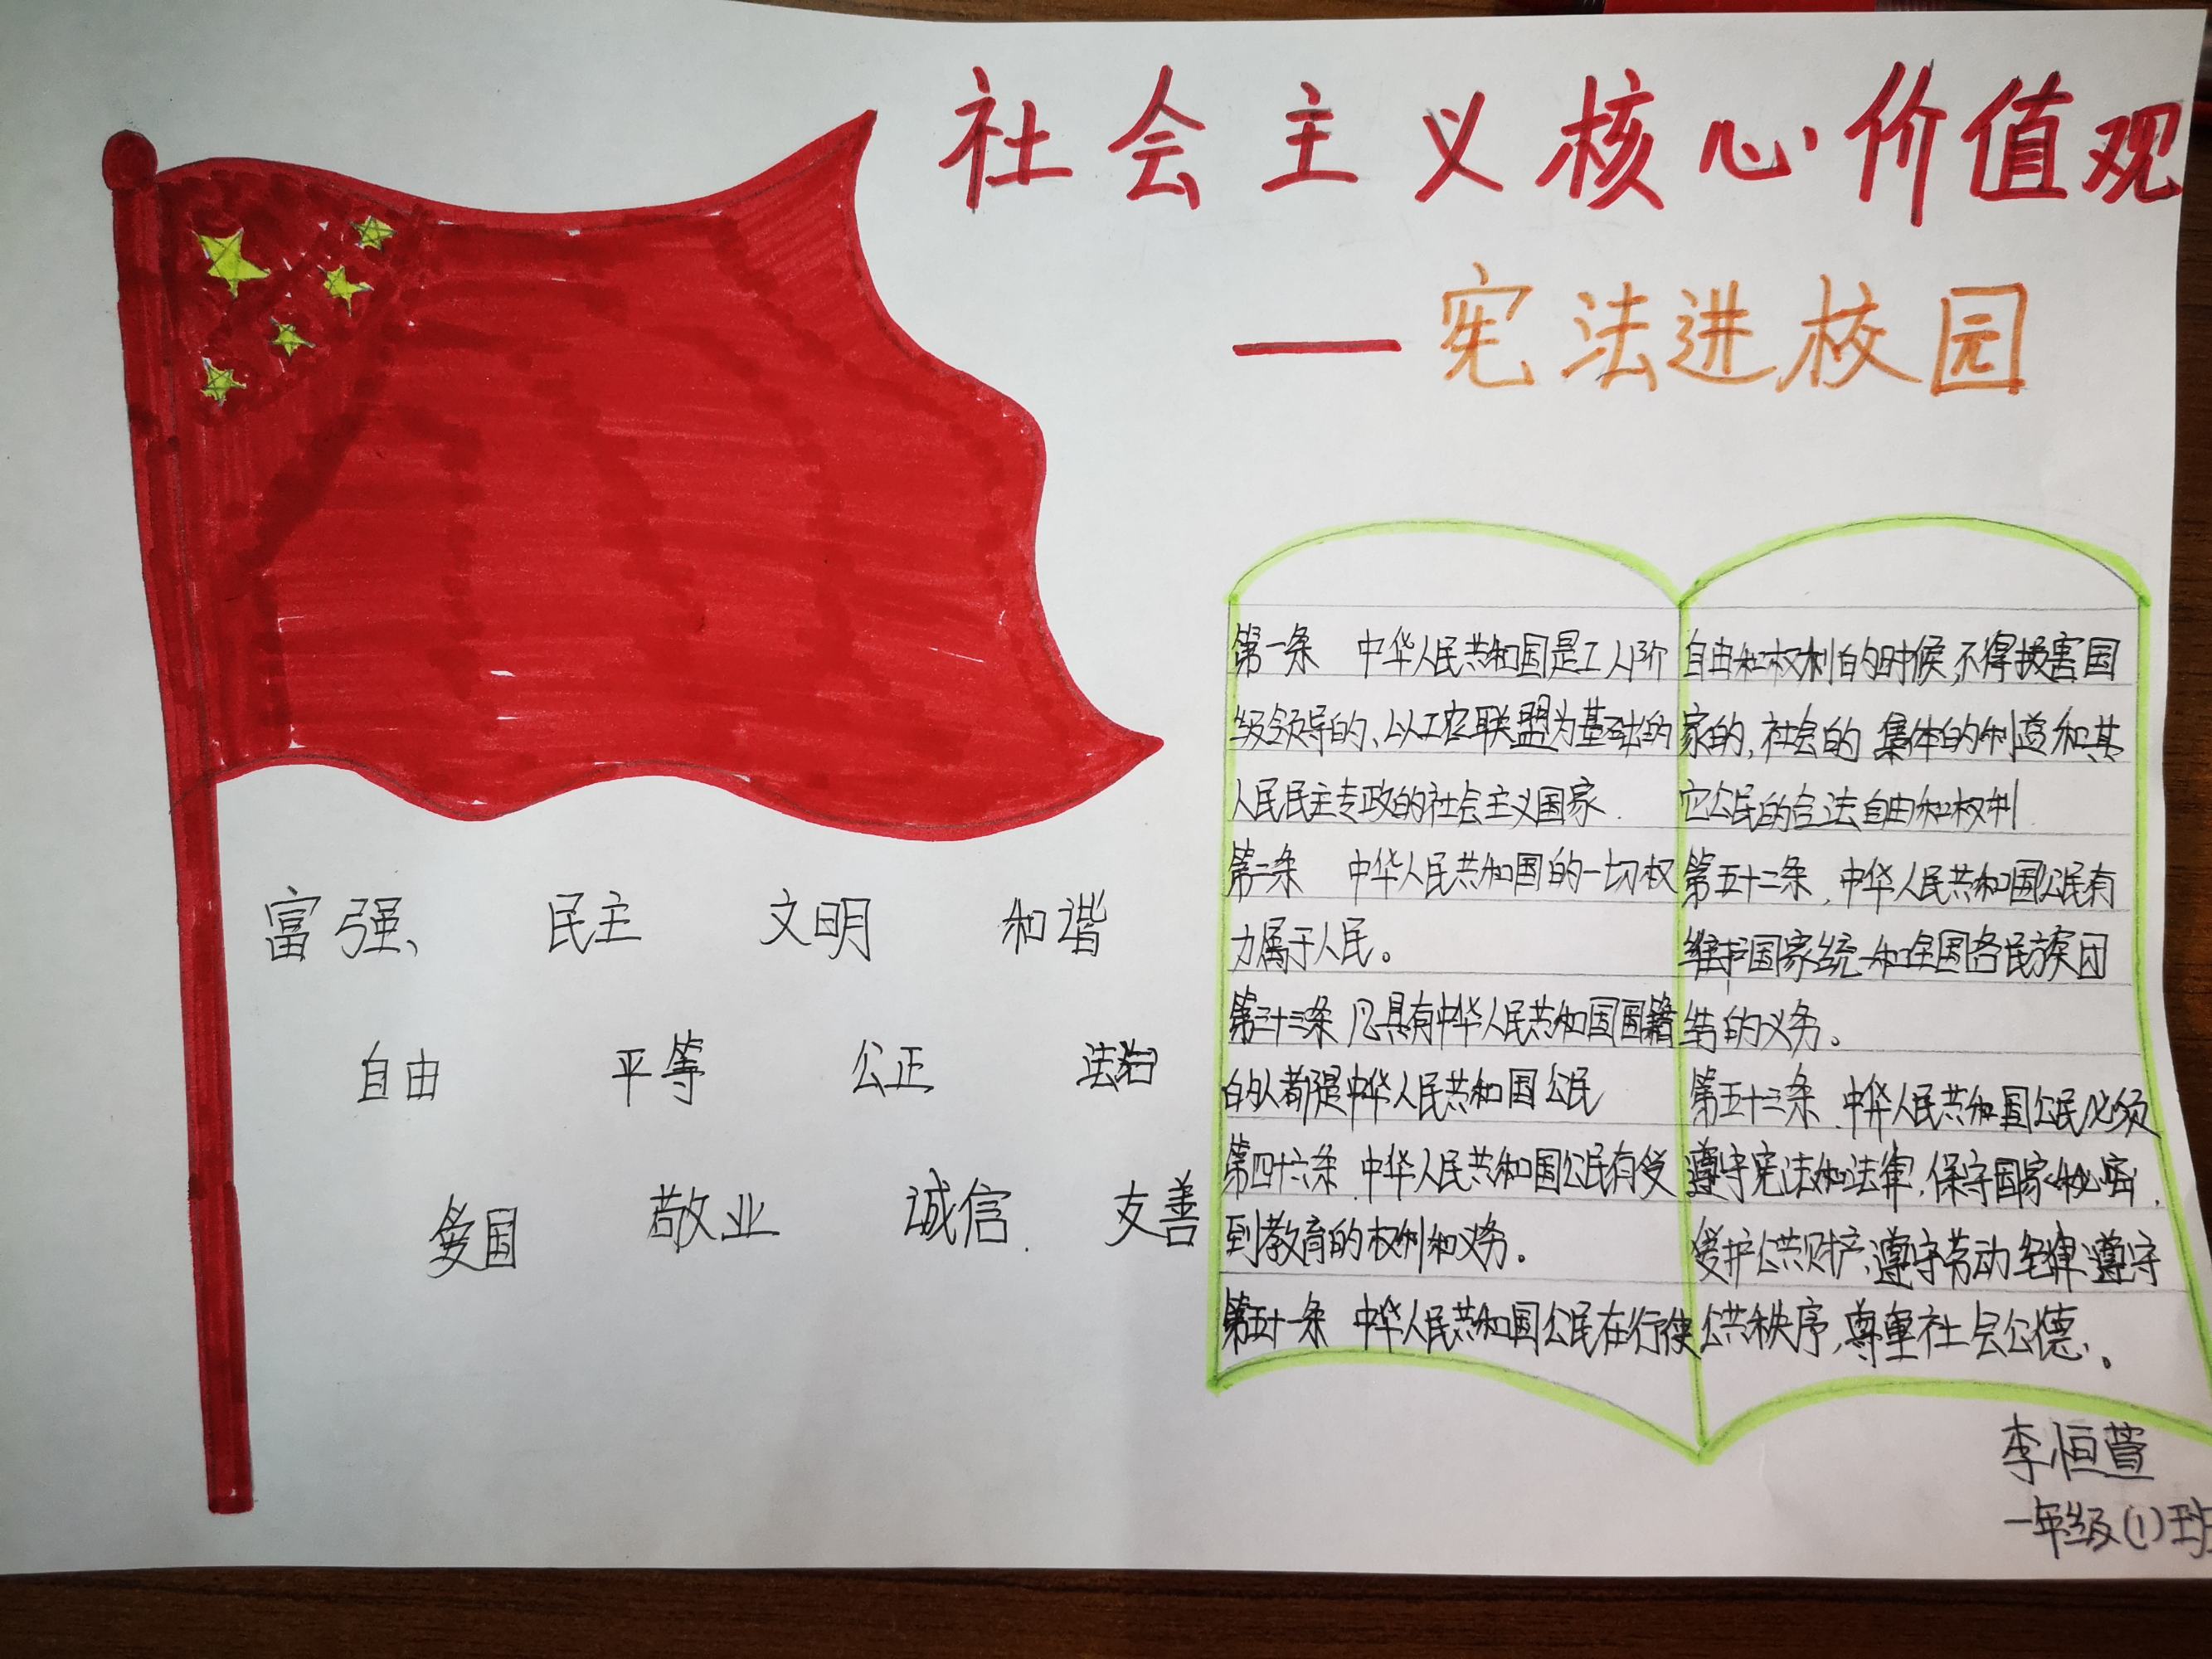 社会主义核心价值观
—宪法进校园
富强、 民主 文明 和谐
自由 平等 公正 法治
爱国 敬业 诚信. 友善
第一条 中华人民共和国是工人阶
级领导的、以工农联盟为基础的
人民民主专政的社会主义国家.
第二条 中华人民共和国的一切权
力属于人民。
第三十三条 凡具有中华人民共和国国籍
的人都是中华人民共和国公民
第四十六条 中华人民共和国公民有受
到教育的权利和义务。
第五十一条 中华人民共和国公民在行使
自由和权利的时候,不得损害国
家的,社会的 集体的利益和其
它公民的合法自由和权利
第五十二条,中华人民共和国公民有
维护国家统一和全国各民族团
结的义务。
第五十三条 中华人民共和国公民必须
遵守宪法和法律,保守国家秘密,
爱护公共财产、遵守劳动纪律、遵守
公共秩序,尊重社会公德。
李恒萱
一年级(1)班